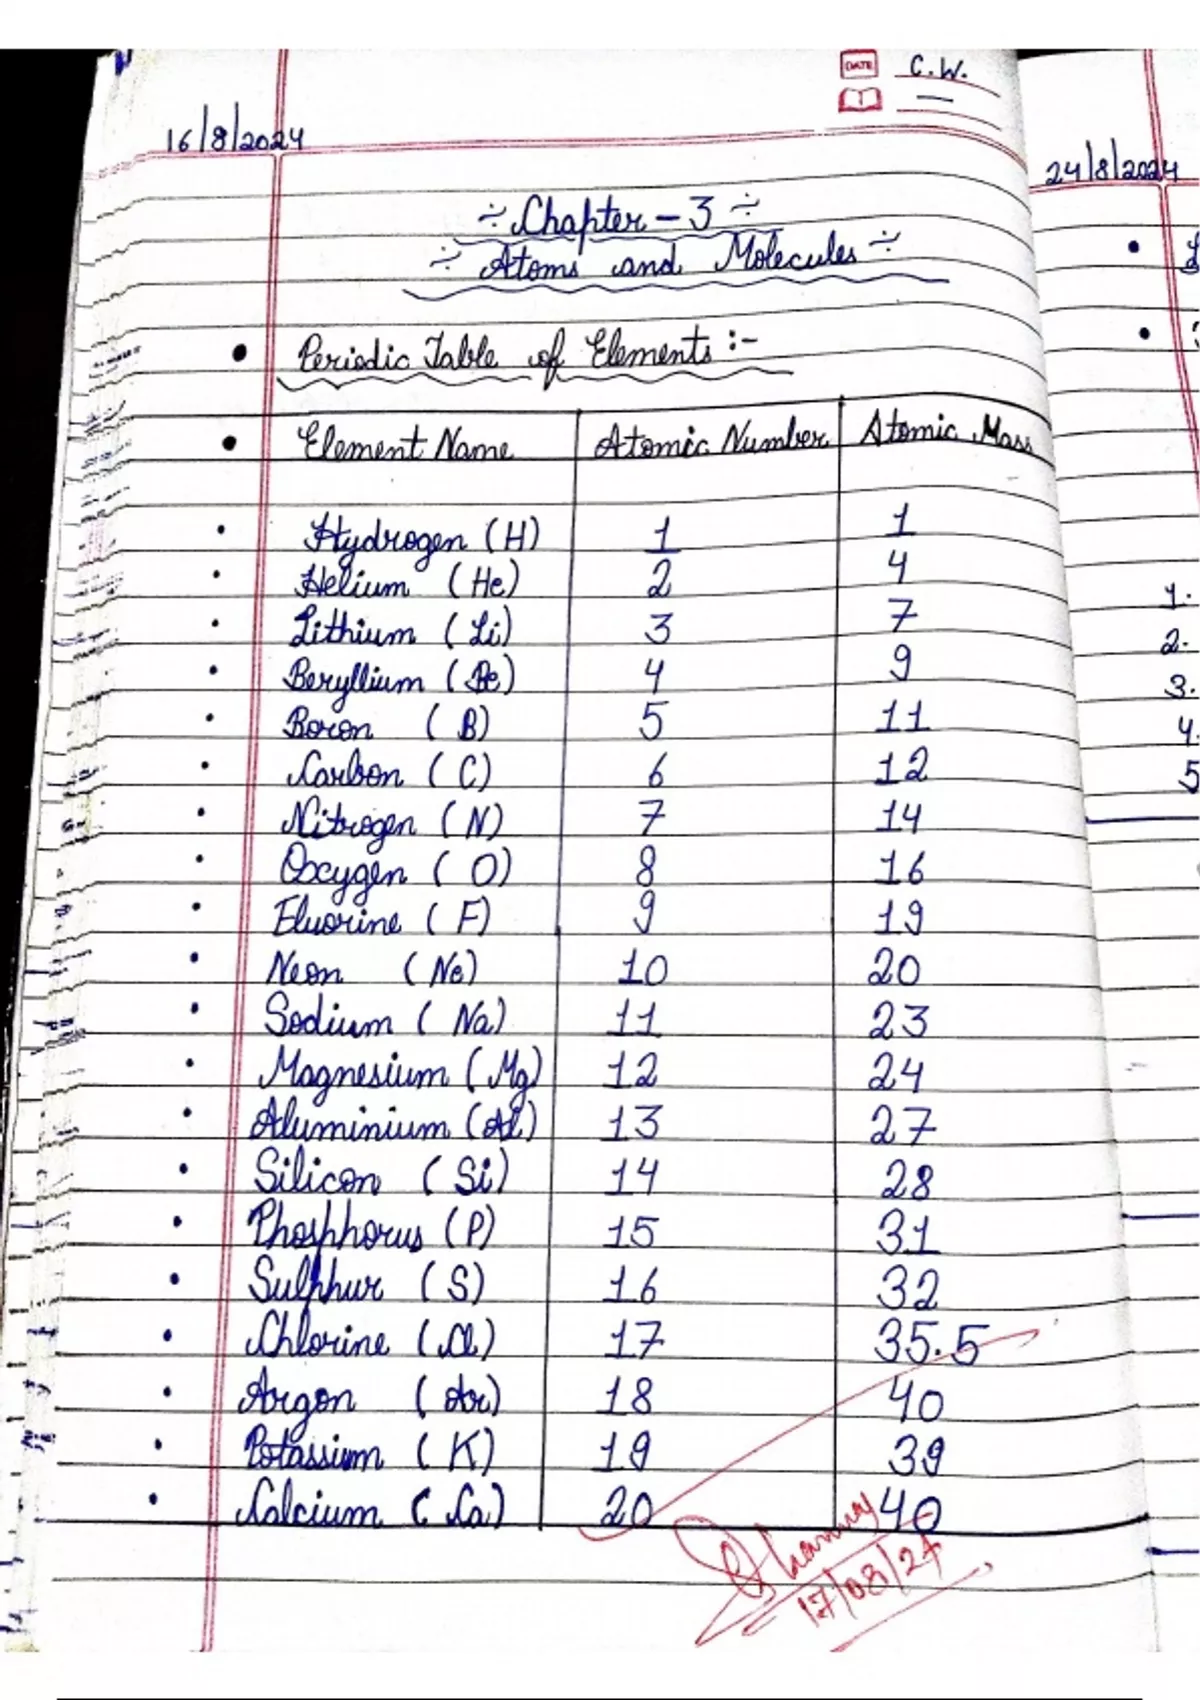 DATE C.W.
16/8/2024
÷ Chapter - 3 ÷
÷ Atoms and Molecules ÷
• Periodic Table of Elements :-
• Element Name Atomic Number Atomic Mass
• Hydrogen (H) 1 1
• Helium (He) 2 4
• Lithium (Li) 3 7
• Beryllium (Be) 4 9
• Boron (B) 5 11
• Carbon (C) 6 12
• Nitrogen (N) 7 14
• Oxygen (O) 8 16
• Fluorine (F) 9 19
• Neon (Ne) 10 20
• Sodium (Na) 11 23
• Magnesium (Mg) 12 24
• Aluminium (Al) 13 27
• Silicon (Si) 14 28
• Phosphorus (P) 15 31
• Sulphur (S) 16 32
• Chlorine (Cl) 17 35.5
• Argon (Ar) 18 40
• Potassium (K) 19 39
• Calcium (Ca) 20 40
17/08/24
24/8/2024
1.
2.
3.
4.
5